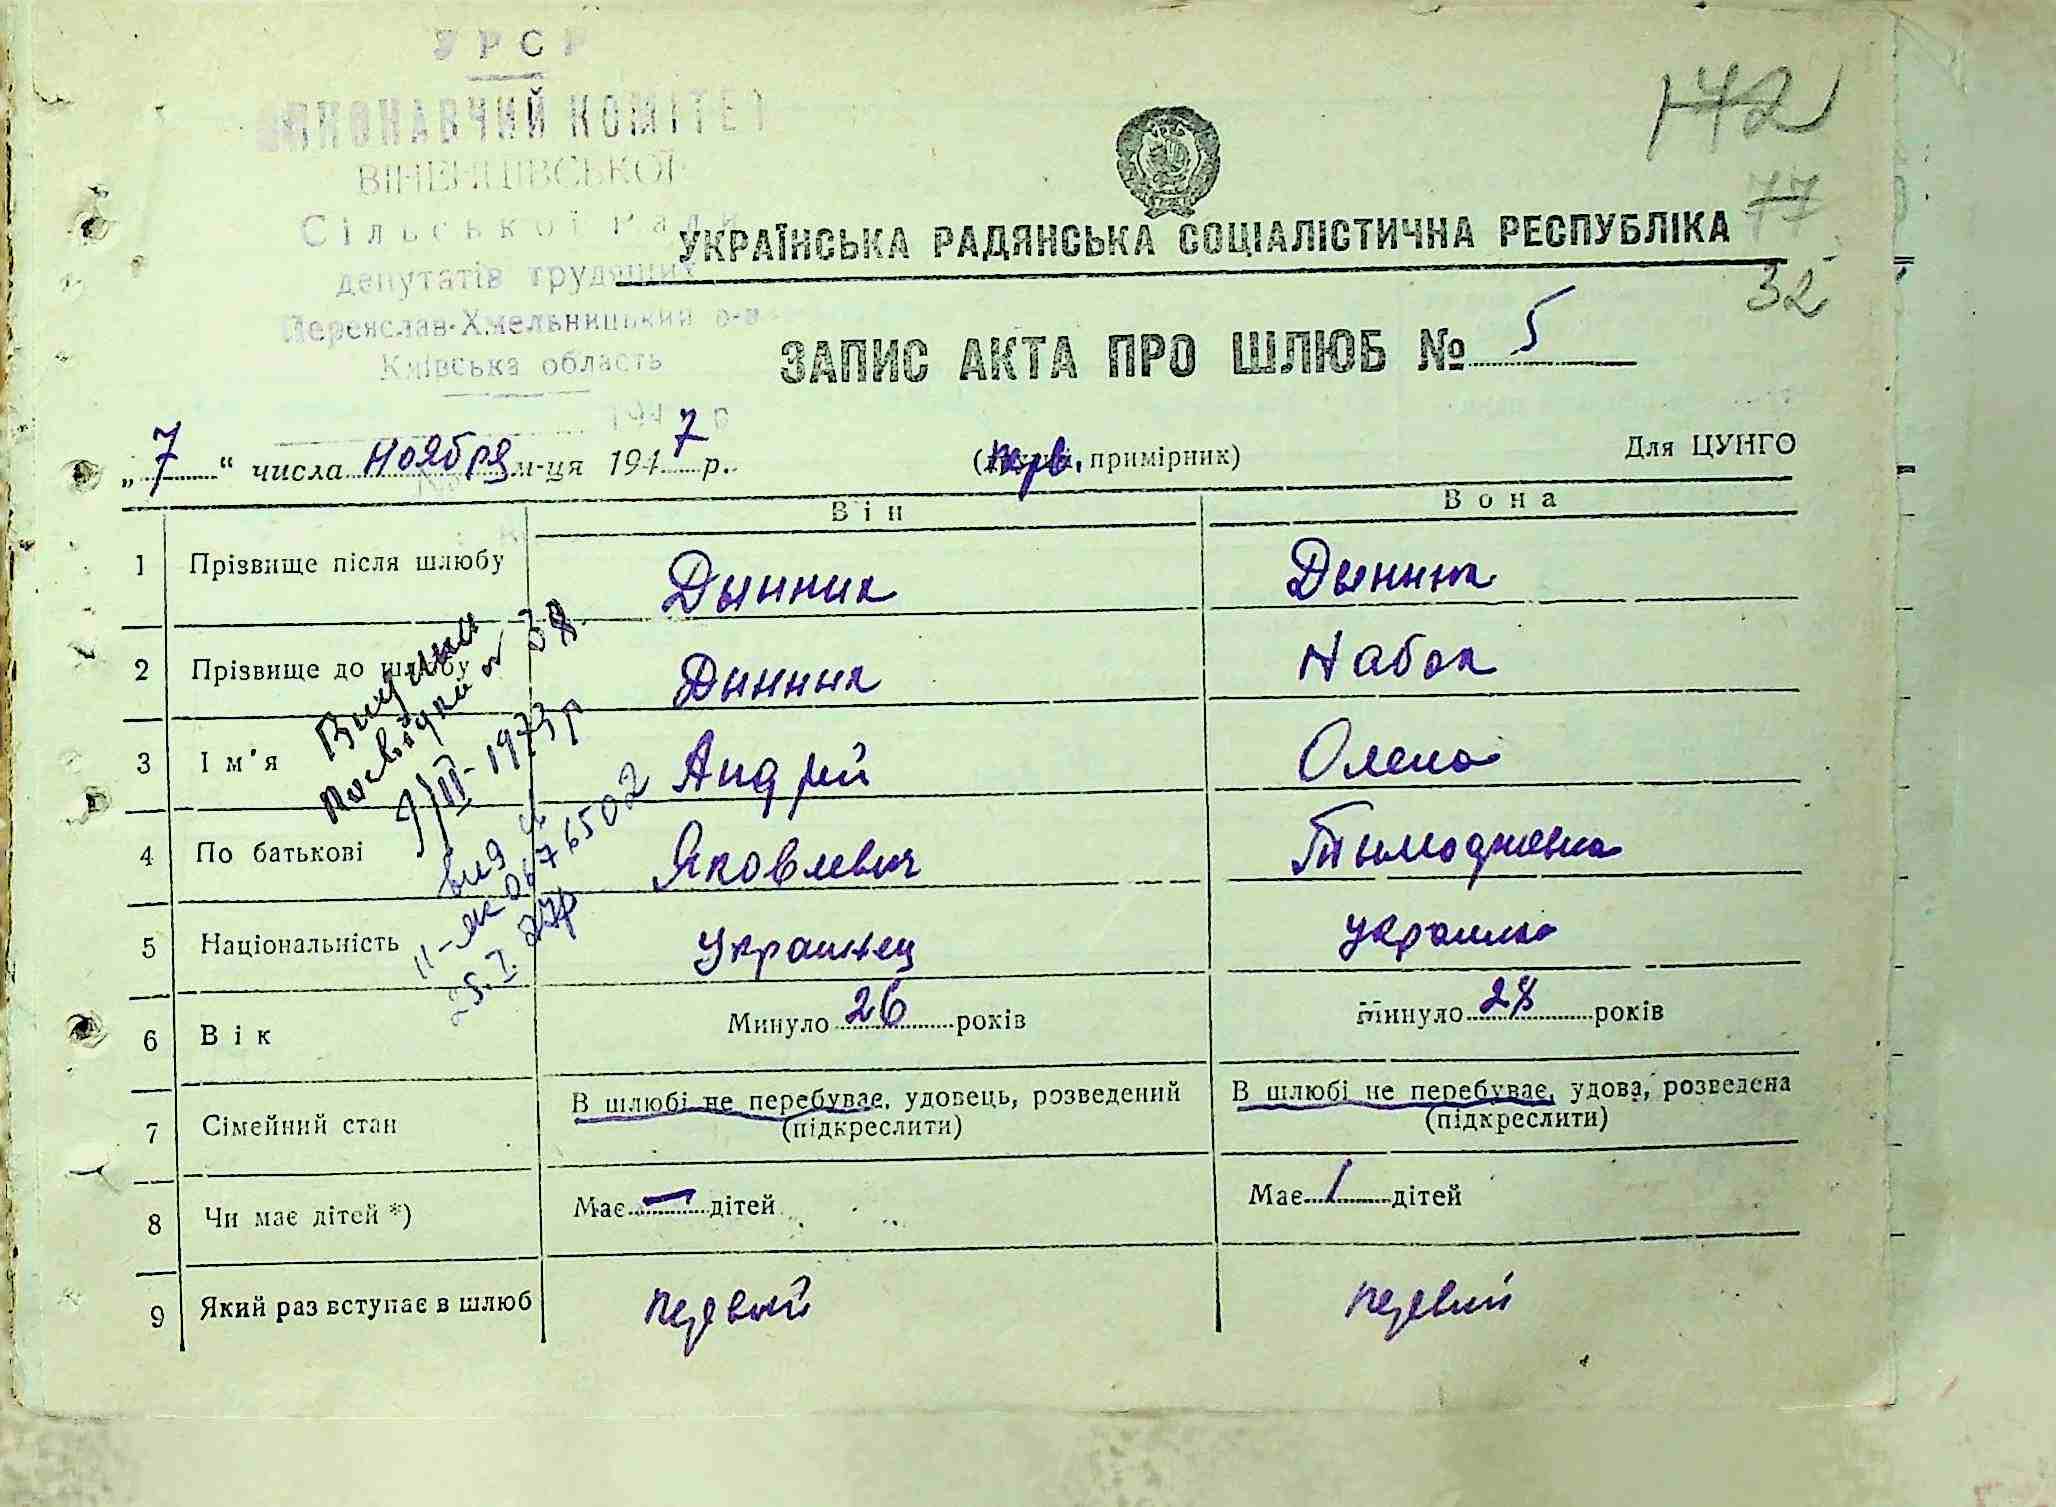 УРСР
ВИКОНАВЧИЙ КОМІТЕТ
Сільської Ради
депутатів трудящих
Переяслав-Хмельницький р-н
Київська область
194 р
142
77
32
УКРАЇНСЬКА РАДЯНСЬКА СОЦІАЛІСТИЧНА РЕСПУБЛІКА
ЗАПИС АКТА ПРО ШЛЮБ № 5
„7“ числа Ноября м-ця 1947 р. (перв. примірник) Для ЦУНГО
Він Вона
1 Прізвище після шлюбу Дынник Дынник
2 Прізвище до шлюбу Динник Набок
3 Ім'я Андрій Олена
4 По батькові Яковлевич
5 Національність Украинец украинка
6 Вік Минуло 26 років Минуло 28 років
7 Сімейний стан В шлюбі не перебуває, удовець, розведений В шлюбі не перебуває, удова, розведена
(підкреслити) (підкреслити)
8 Чи має дітей *) Має — дітей Має 1 дітей
9 Який раз вступає в шлюб первый первый
1973р